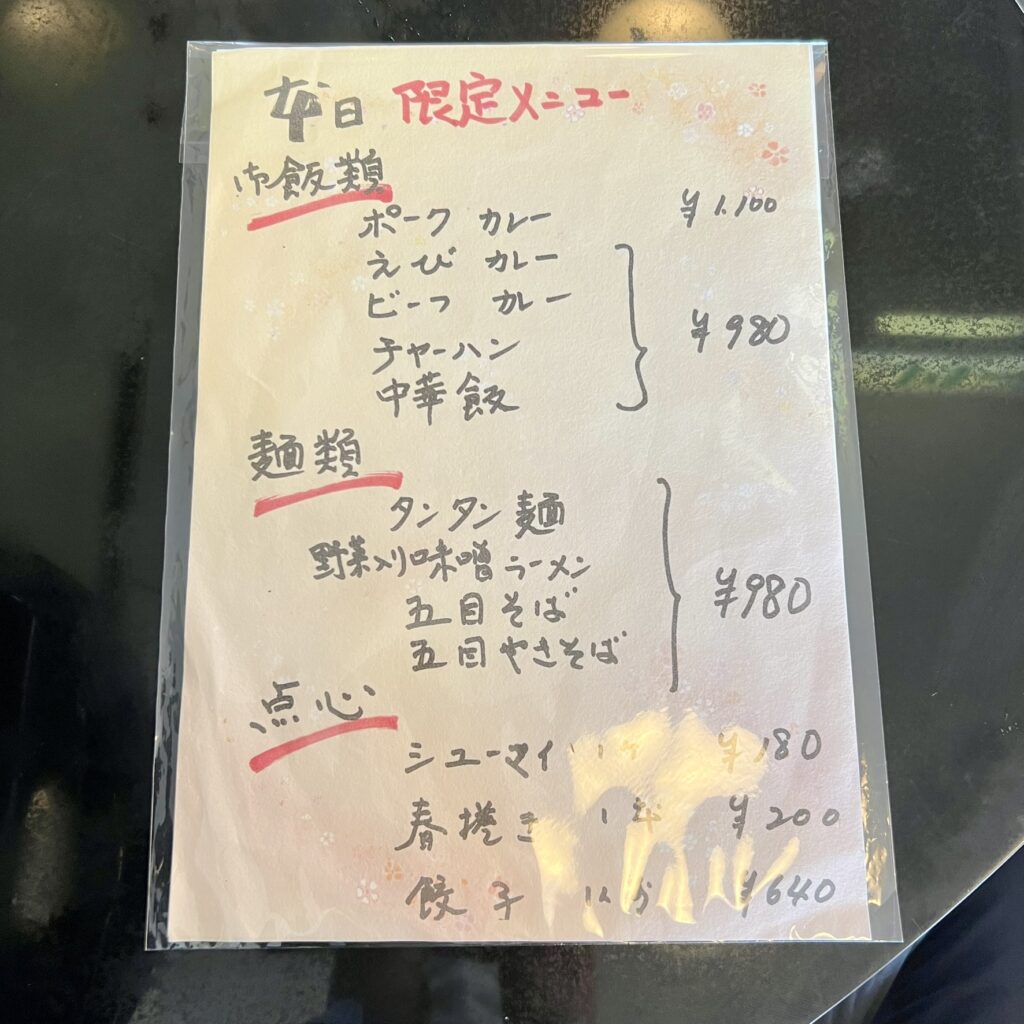 本日 限定メニュー
御飯類
ポーク カレー ¥1,100
えび カレー
ビーフ カレー
¥980
チャーハン
中華飯
麺類
タンタン麺
野菜入り味噌ラーメン
¥980
五目そば
五目やきそば
点心
シューマイ 1ケ ¥180
春捲き 1本 ¥200
餃子 ¥640